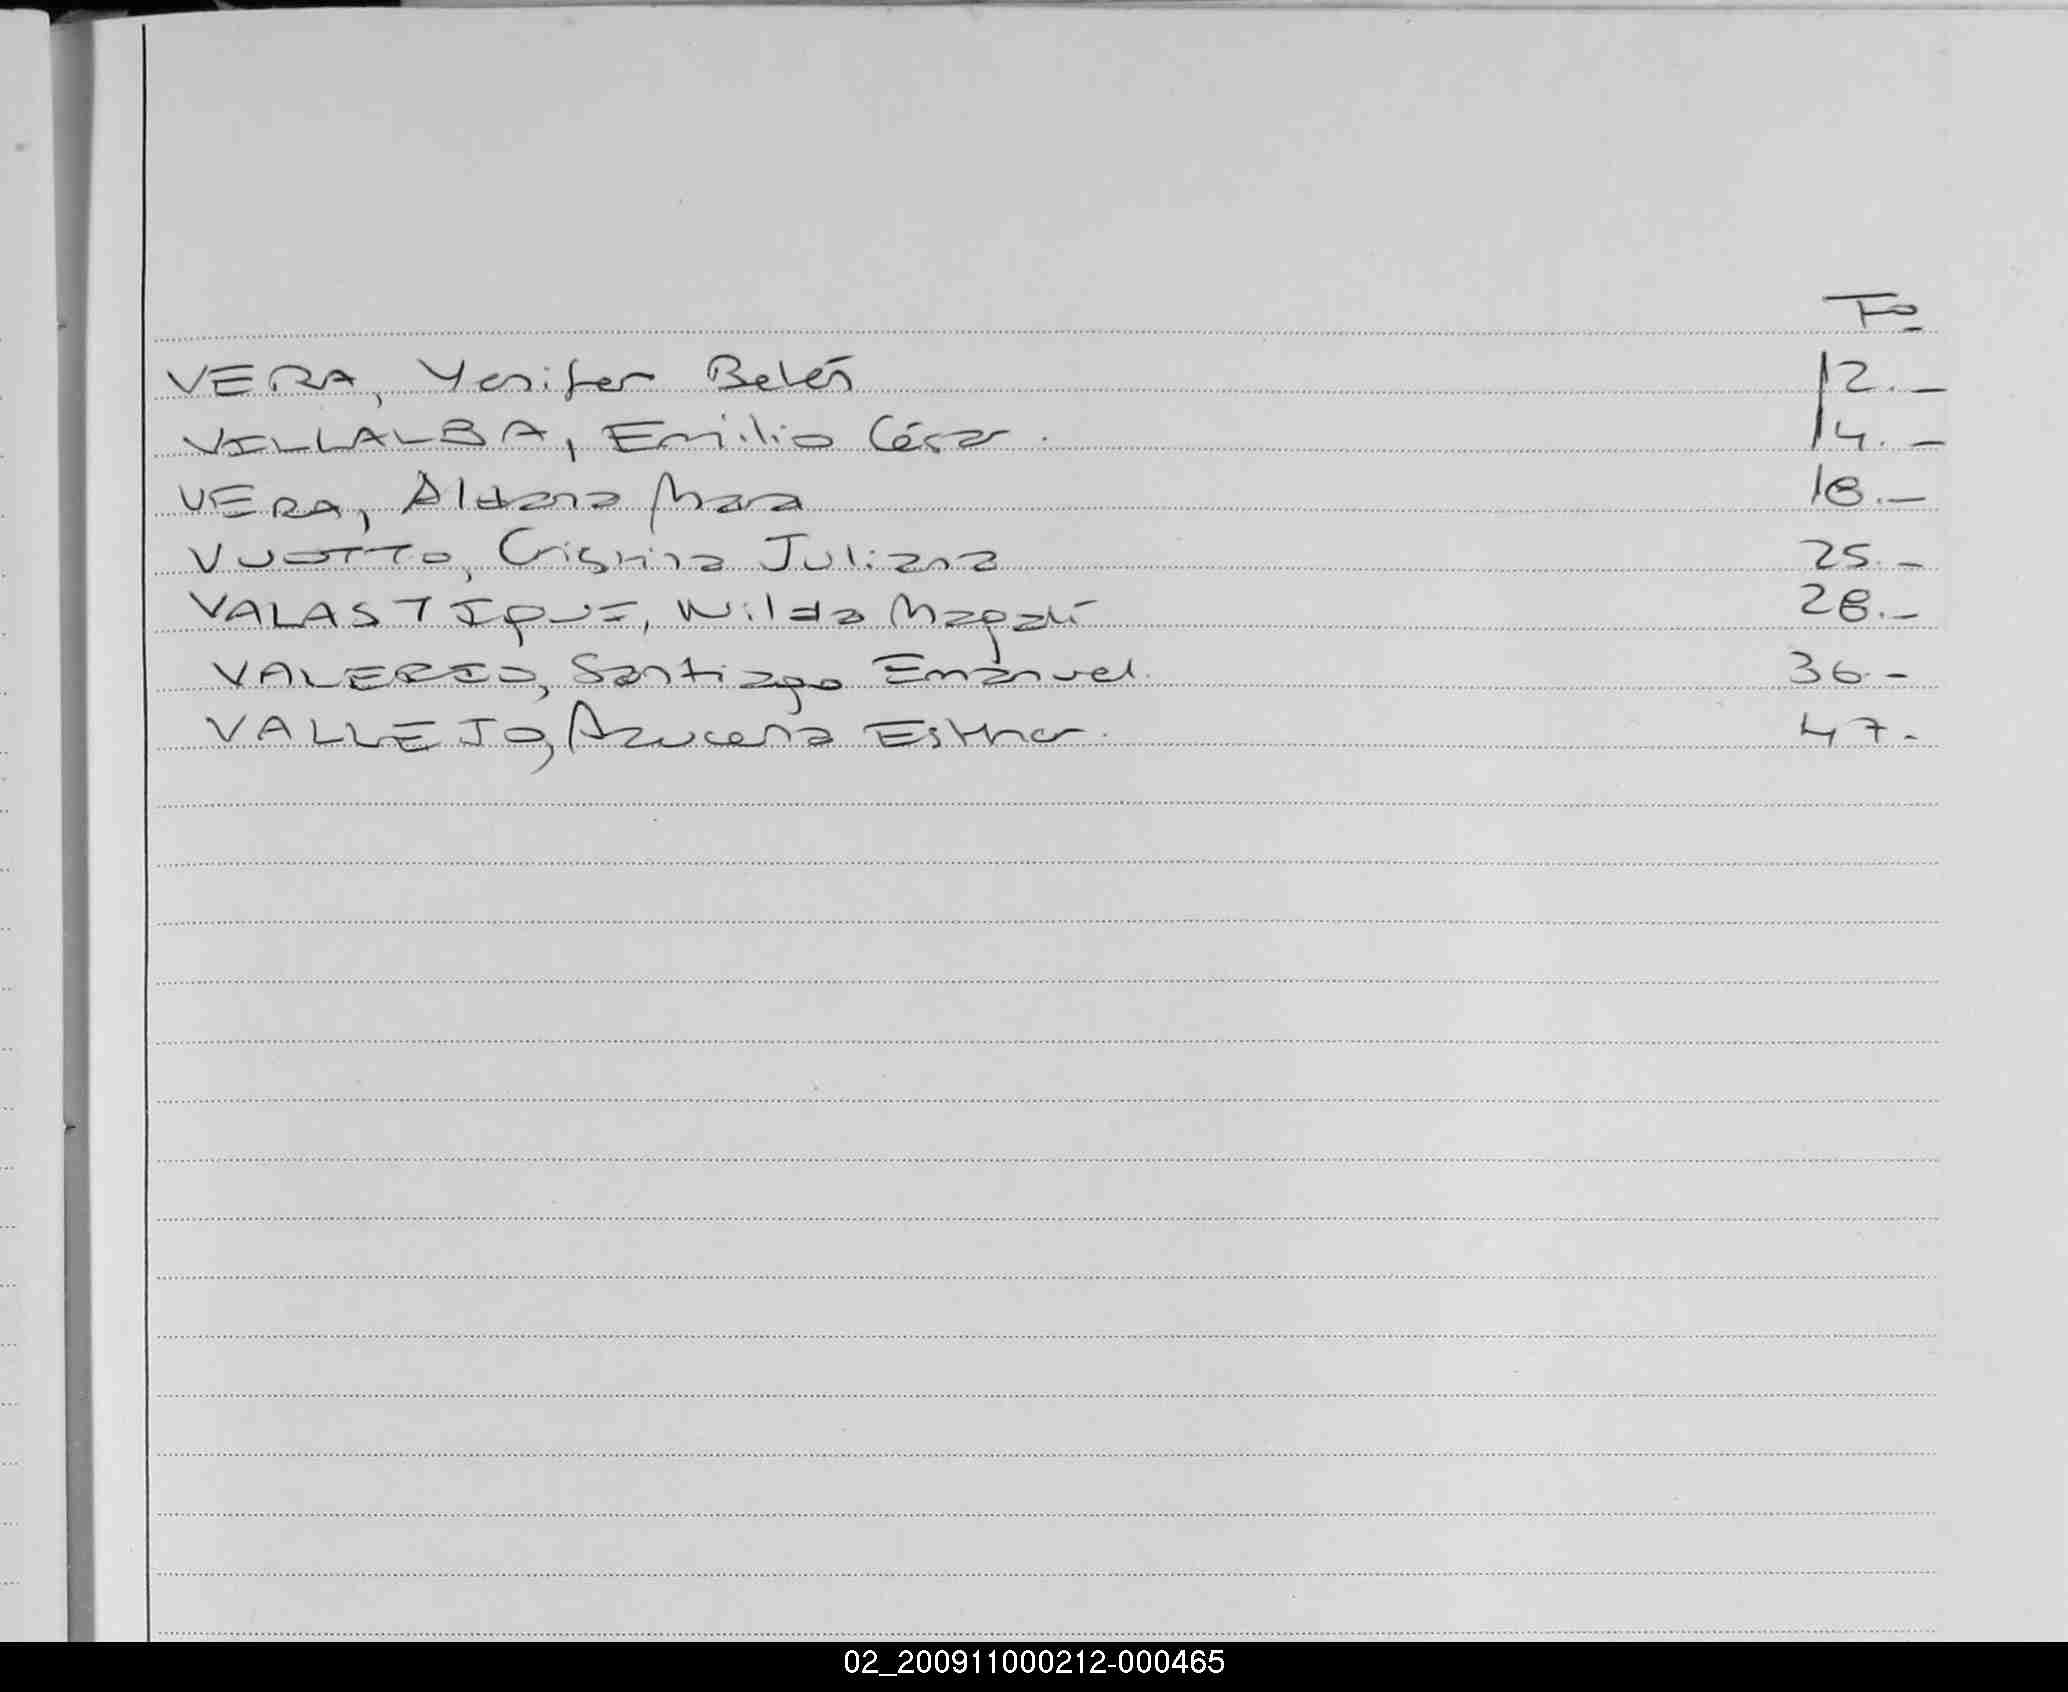 Fº
VERA, Yenifer Belén 12.-
VILLALBA, Emilio César. 14.-
VERA, Aldana Mara 18.-
VUOTTO, Cristina Juliana 25.-
VALASTIQUE, Nilda Magalí 28.-
VALERIO, Santiago Emanuel. 36.-
VALLEJO, Azucena Esther. 47.-
02_200911000212-000465